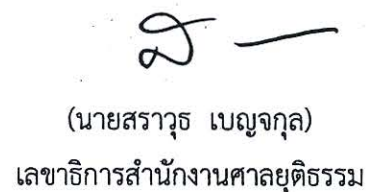 (นายสราวุธ เบญจกุล)
เลขาธิการสำนักงานศาลยุติธรรม